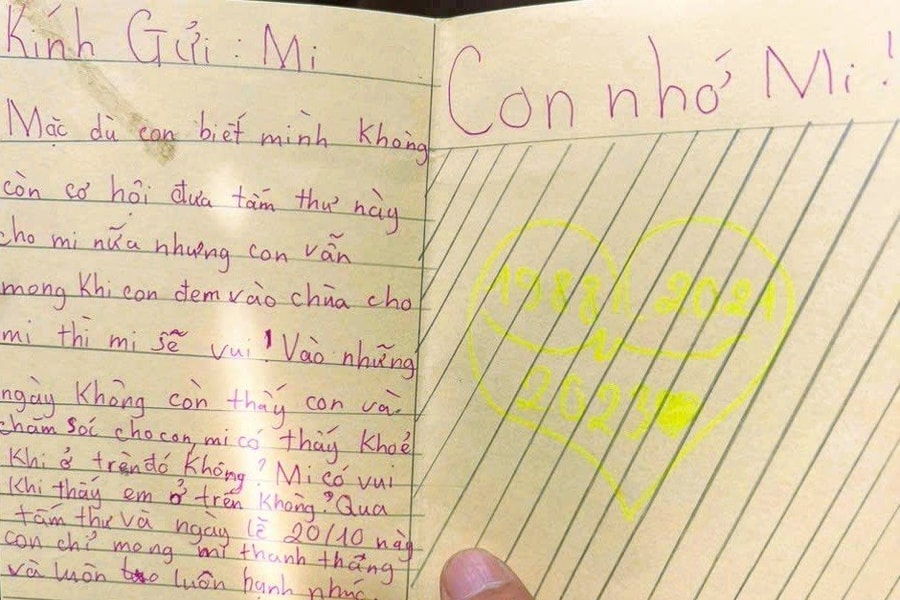 Kính Gửi : Mi
Mặc dù con biết mình không
còn cơ hội đưa tấm thư này
cho mi nữa nhưng con vẫn
mong khi con đem vào chùa cho
mi thì mi sẽ vui ! Vào những
ngày không còn thấy con và
chăm sóc cho con, mi có thấy khoẻ
khi ở trên đó không? Mi có vui
khi thấy em ở trên không? Qua
tấm thư và ngày lễ 20/10 này
con chỉ mong mi thanh thắng
và luôn luôn hạnh phúc.
Con nhớ Mi !
1988 2021
2023